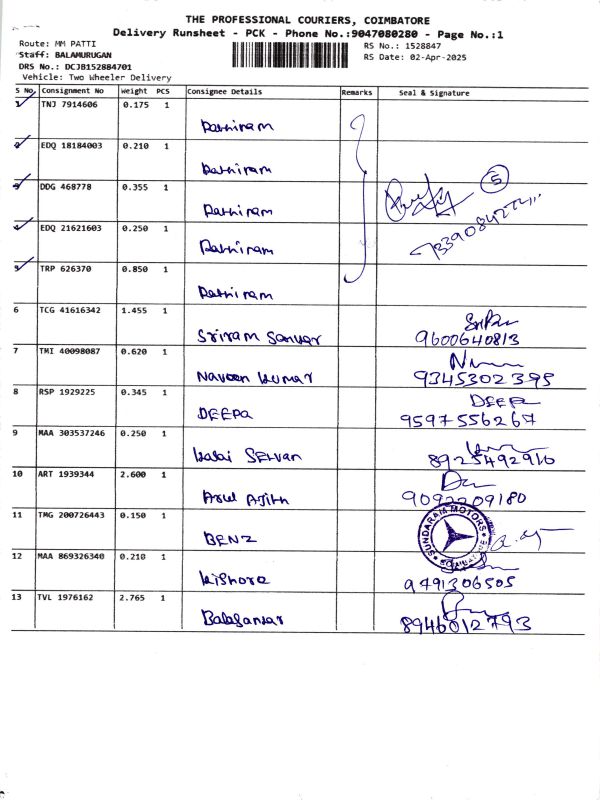 THE PROFESSIONAL COURIERS, COIMBATORE
Delivery Runsheet - PCK - Phone No.:9047080280 - Page No.:1
Route: MM PATTI RS No.: 1528847
Staff: BALAMURUGAN RS Date: 02-Apr-2025
DRS No.: DCJB152884701
Vehicle: Two Wheeler Delivery
S No. Consignment No Weight PCS Consignee Details Remarks Seal & Signature
1 TNJ 7914606 0.175 1
Rathiram
2 EDQ 18184003 0.210 1
Rathiram
3 DDG 468778 0.355 1
5
Rathiram
4 EDQ 21621603 0.250 1
Rathiram
5 TRP 626370 0.850 1
Rathiram
6 TCG 41616342 1.455 1
Sriram Sankar 9600640813
7 TMI 40098087 0.620 1
Naveen kumar 9345302395
8 RSP 1929225 0.345 1 DEEPA
DEEPA 9597556267
9 MAA 303537246 0.250 1
kalai SELvan 8925492910
10 ART 1939344 2.600 1
Arul Ajith 9092209180
11 TMG 200726443 0.150 1
SUNDARAM MOTORS
COIMBATORE
BENZ
12 MAA 869326340 0.210 1
kishore 9491306505
13 TVL 1976162 2.765 1
8946012793